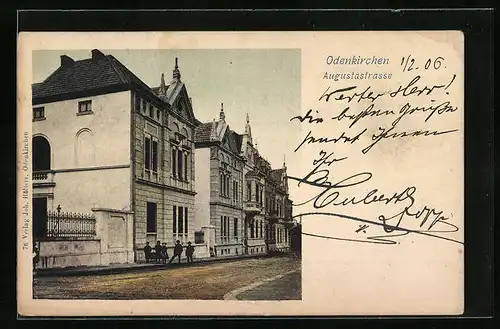 Odenkirchen
Augustastrasse
1/2. 06.
Werter Herr!
die besten Grüße
sendet Ihnen
Ihr
Hubert Kopp
78 Verlag Joh. Odenkirchen